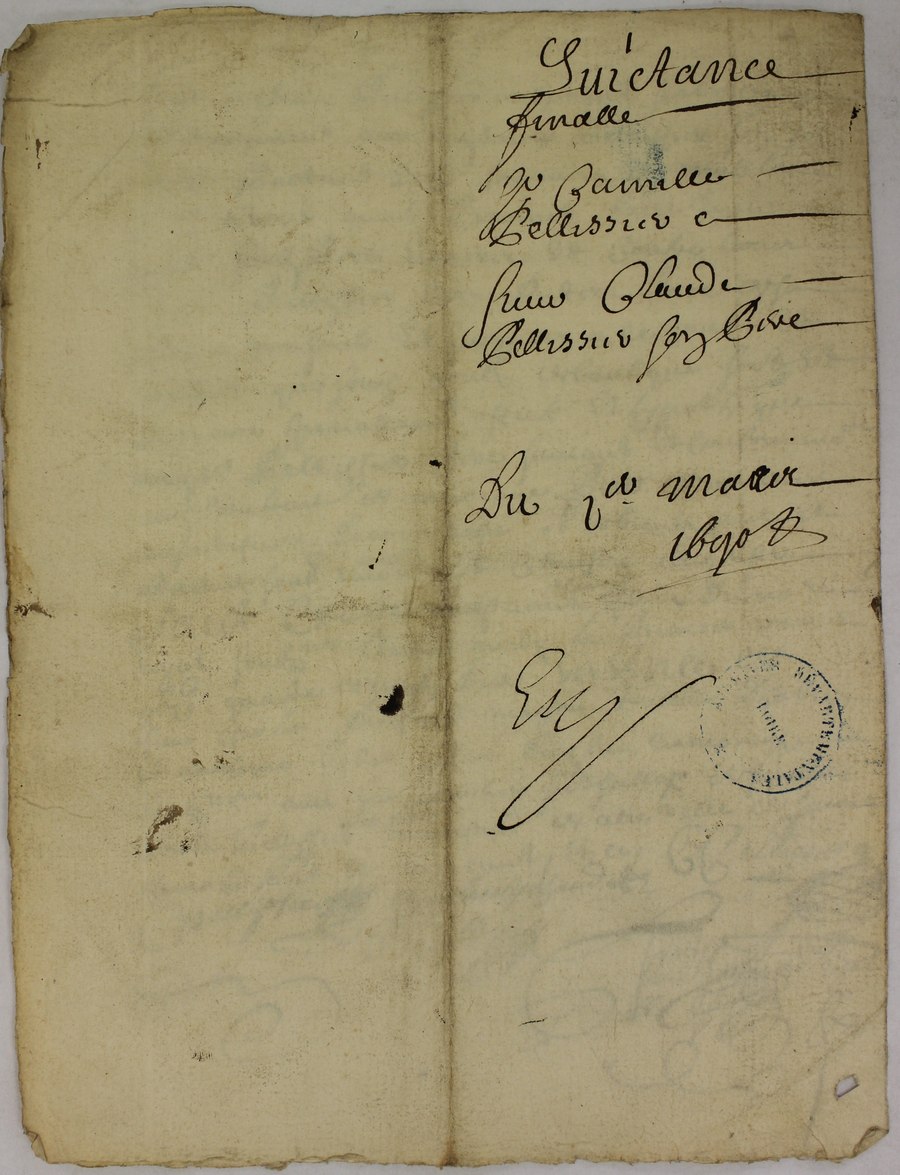 Quictance
finalle
po Camille
Pellissier a
sieur Claude
Pellissier son Pere
Du mars
1690
ARCHIVES DEPARTEMENTALES